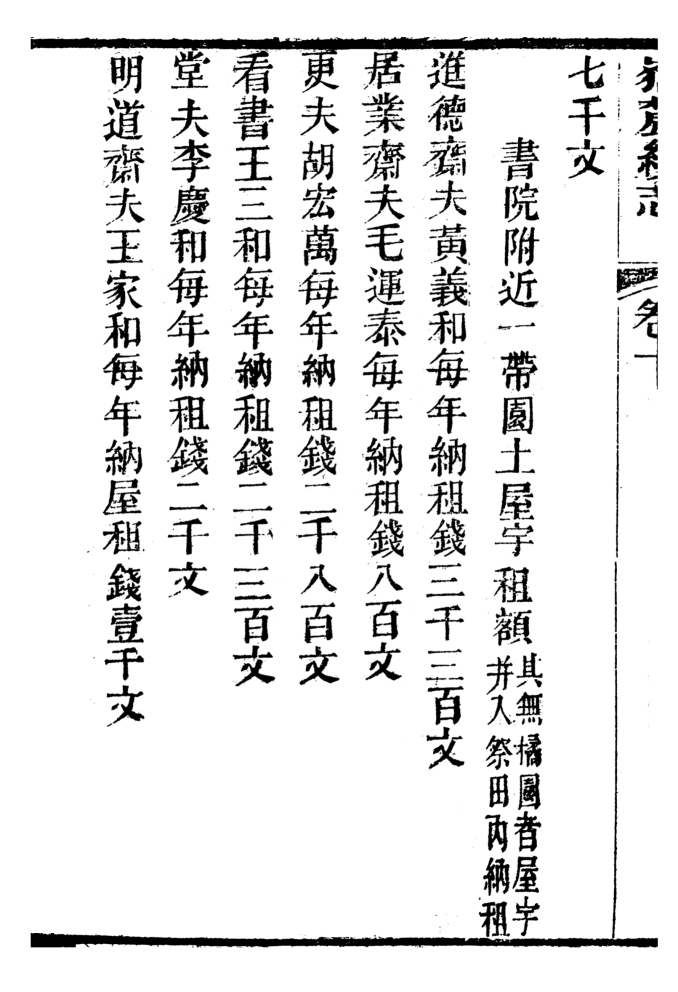 七千文
書院附近一帶園土屋宇租額其無橘園者屋宇并入祭田內納租
進德齋夫黃義和每年納租錢三千三百文
居業齋夫毛運泰每年納租錢八百文
更夫胡宏萬每年納租錢二千八百文
看書王三和每年納租錢二千三百文
堂夫李慶和每年納租錢二千文
明道齋夫王家和每年納屋租錢壹千文